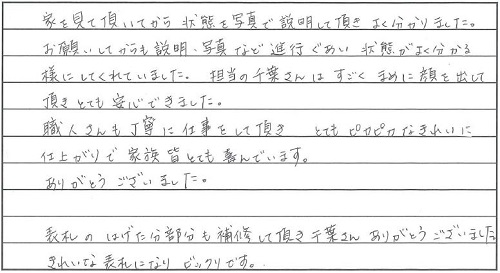 家を見て頂いてから 状態を写真で説明して頂き よく分かりました。
お願いしてからも説明、写真など進行ぐあい 状態がよく分かる
様にしてくれていました。 担当の千葉さんは すごく まめに顔を出して
頂きとても安心できました。
職人さんも丁寧に仕事をして頂き とてもピカピカなきれいに
仕上がりで 家族皆とても喜んでいます。
ありがとう ございました。
表札の はげた分部分も補修して頂き千葉さん ありがとうございました
きれいな表札になり ビックリです。